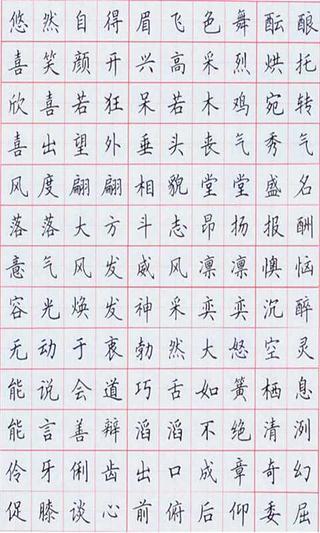 悠然自得眉飞色舞酝酿
喜笑颜开兴高采烈烘托
欣喜若狂呆若木鸡宛转
喜出望外垂头丧气秀气
风度翩翩相貌堂堂盛名
落落大方斗志昂扬报酬
意气风发威风凛凛懊恼
容光焕发神采奕奕沉醉
无动于衷勃然大怒空灵
能说会道巧舌如簧栖息
能言善辩滔滔不绝清洌
伶牙俐齿出口成章奇幻
促膝谈心前俯后仰委屈